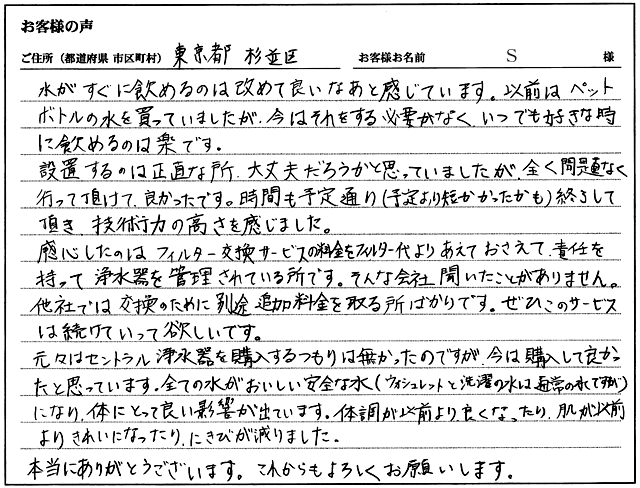 お客様の声
ご住所（都道府県 市区町村） 東京都 杉並区 お客様お名前 S 様
水がすぐに飲めるのは改めて良いなあと感じています。以前はペット
ボトルの水を買っていましたが、今はそれをする必要がなく、いつでも好きな時
に飲めるのは楽です。
設置するのは正直な所、大丈夫だろうかと思っていましたが、全く問題なく
行って頂けて、良かったです。時間も予定通り（予定より短かかったかも）終了して
頂き、技術力の高さを感じました。
感心したのは フィルター交換サービスの料金をフィルター代よりあえておさえて、責任を
持って 浄水器を管理されている所です。そんな会社 聞いたことがありません。
他社では 交換のために別途 追加料金を取る所ばかりです。ぜひこのサービス
は続けていって欲しいです。
元々はセントラル浄水器を購入するつもりは無かったのですが、今は購入して良かっ
たと思っています。全ての水がおいしい安全な水（ウォシュレットと洗濯の水は通常の水ですが）
になり、体にとって良い影響が出ています。体調が以前より良くなったり、肌が以前
よりきれいになったり、にきびが減りました。
本当にありがとうございます。これからもよろしくお願いします。